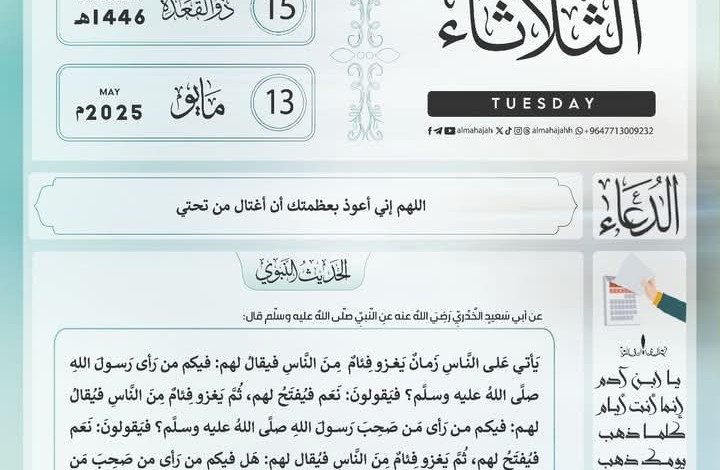 الثلاثاء
TUESDAY
almahajah almahajahh +9647713009232
15 ذو القعدة 1446هـ
13 مايو MAY 2025م
الدعاء
اللهم إني أعوذ بعظمتك أن أغتال من تحتي
الحديث النبوي
عن أبي سَعيدٍ الخُدْرِيّ رَضِيَ اللهُ عنه عنِ النّبيّ صلّى اللهُ عليه وسلّم قال:
يَأتي عَلى النَّاسِ زَمانٌ يَغزو فِئامٌ مِنَ النَّاسِ فيقالُ لهم: فيكم من رَأى رَسولَ اللهِ
صلَّى اللهُ عليه وسلَّم؟ فيَقولونَ: نَعَم فيُفتَحُ لهم، ثُمَّ يَغزو فِئامٌ مِنَ النَّاسِ فيُقالُ
لهم: فيكم من رَأى مَن صَحِبَ رَسولَ اللهِ صلَّى اللهُ عليه وسلَّم؟ فيَقولونَ: نَعَم
فيُفتَحُ لهم، ثمَّ يَغزو فِئامٌ مِنَ النَّاسِ فيُقال لهم: هَل فيكم من رَأى من صَحِبَ مَن
يا ابن آدم
إنما أنت أيام
كلما ذهب
يومك ذهب